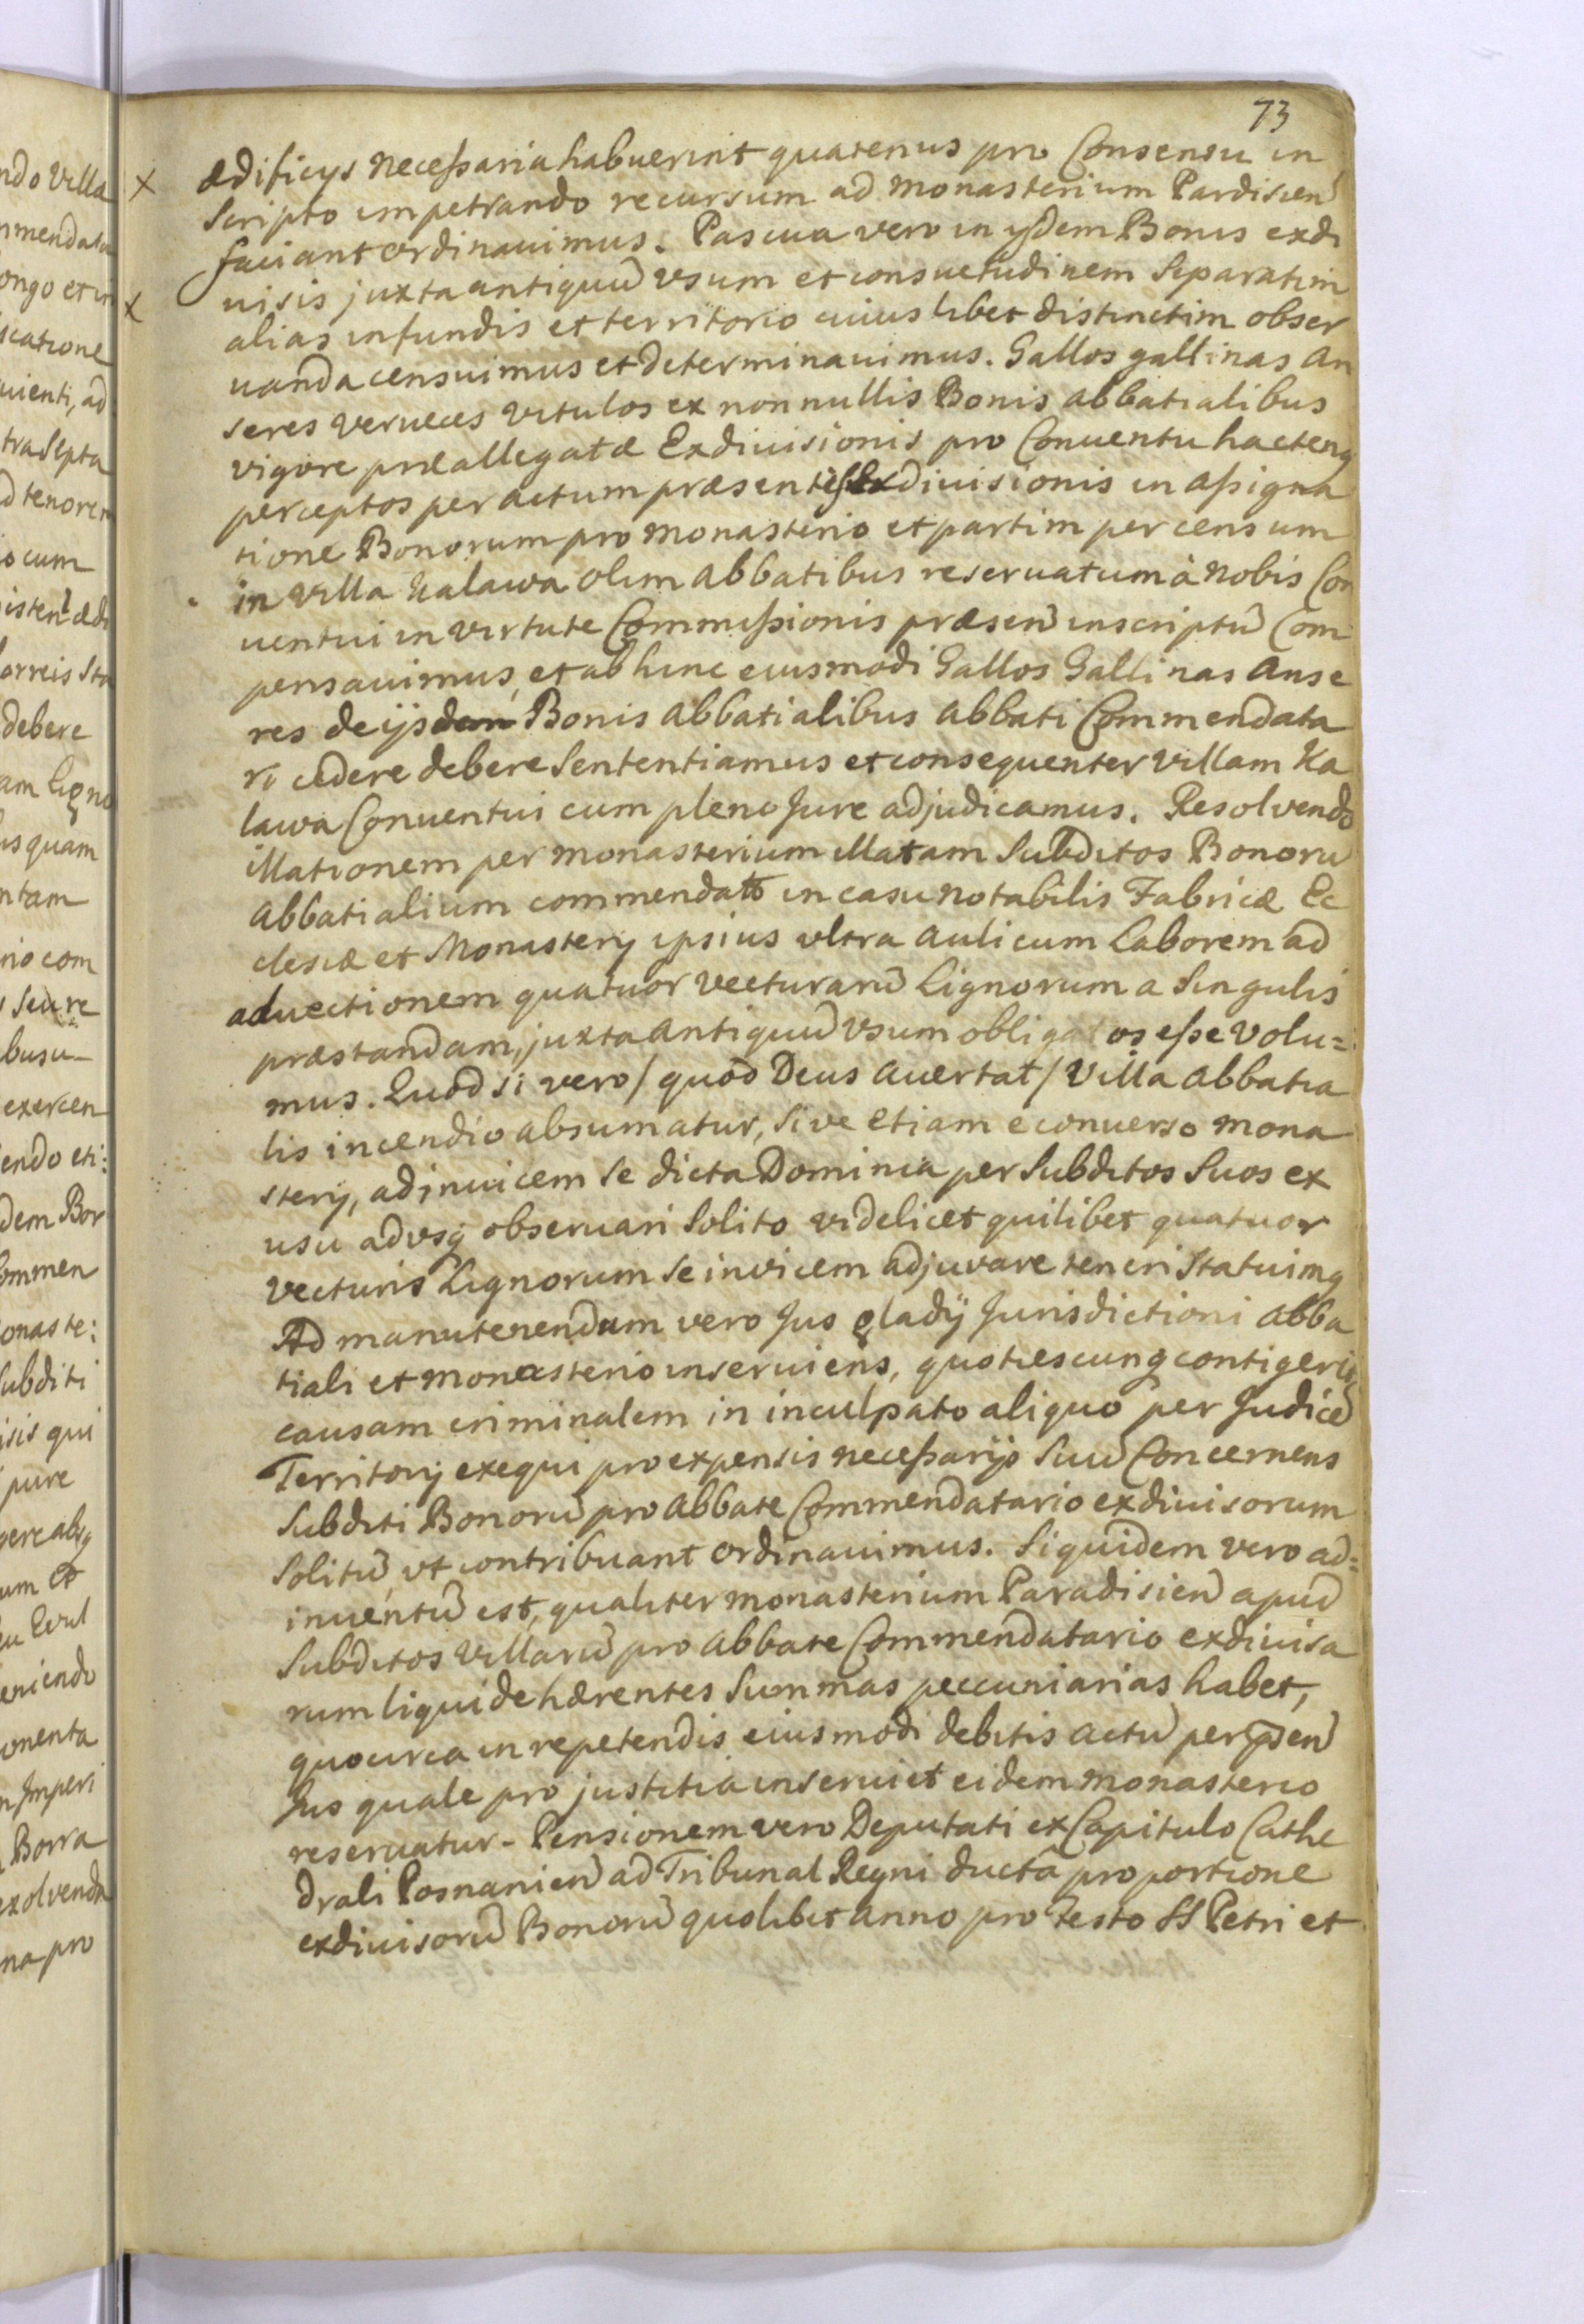 73
ndo Villa
mmendata
ongo et in
scatione
uienti, ad
tra Septa
d tenorem
io cum
istent ædi
orreis Sta
debere
am Ligno
is quam
ntam
rio com
s seu re
busu-
exercen
endo eti:
dem Bor
Commen
onaste:
Subditi
isis qui
pure
gere absq
um et
eniendo
omenta
n Imperi
Borra
exolvenda
na pro
x ædificys necessaria habuerint quatenus pro Consensu in
scripto impetrando recursum ad monasterium Pardisien̄
faciant ordinauimus. Pascua vero in ysdem Bonis exdi
x uisis juxta antiquū vsum et consuetudinem Separatim
alias in fundis et territorio cuius libet distinctim obser
uanda censuimus et determinauimus. Gallos gallinas An
seres verueces vitulos ex nonnullis Bonis abbatialibus
vigore præallegatæ Exdiuisionis pro Conuentu hactenq
perceptos per actum præsentis Exdiuisionis in assigna
tione Bonorum pro monasterio et partim per censum
in Villa Kalawa olim Abbatibus reseruatum à nobis Con
uentui in virtute Commissionis præsen̄ inscriptū Com
pensauimus, et ab hinc eiusmodi Gallos Gallinas Anse
res de ijsdem Bonis Abbatialibus Abbati Commendata
rio cedere debere Sententiamus et consequenter villam Ka
lawa Conuentui cum pleno Jure adjudicamus. Resolvendo
illationem per monasterium illatam Subditos Bonorū
Abbatialium commendato in casu notabilis Fabricæ Ec
clesiæ et Monastery ipsius vltra aulicum Laborem ad
aduectionem quatuor vecturarū Lignorum a Singulis
præstandam, juxta antiquū vsum obligatos esse volu=
mus. Quod si vero / quod Deus auertat / Villa Abbatia
lis incendio absumatur, sive etiam e conuerso mona
stery, ad inuicem se dicta Dominia per Subditos Suos ex
usu advsq observari Solito videlicet quilibet quatuor
vecturis Lignorum se invicem adjuvare teneri Statuimq
Ad manutenendum vero Jus gladij Jurisdictioni Abba
tiali et monasterio inseruiens, quotiescunq contigerit
causam criminalem in inculpato aliquo per Judicē
Territorij exequi pro expensis necessarijs Suū Concernens
Subditi Bonorū pro Abbate Commendatario exdiuisorum
Solitū, vt contribuant ordinauimus. Siquidem vero ad=
inuentū est, qualiter monasterium Paradisien̄ apud
Subditos Villarū pro Abbate Commendatario exdiuisa
rum liquide hærentes Summas peccuniarias habet,
quocirca in repetendis eiusmodi debitis actū per p̄sen̄
Jus quale pro justitia inseruiet eidem monasterio
reseruatur- Pensionem vero Deputati ex Capitulo Cathe
drali Posnanien̄ ad Tribunal Regni ducta proportione
exdiuisorū Bonorū quolibet anno pro Festo SS Petri et